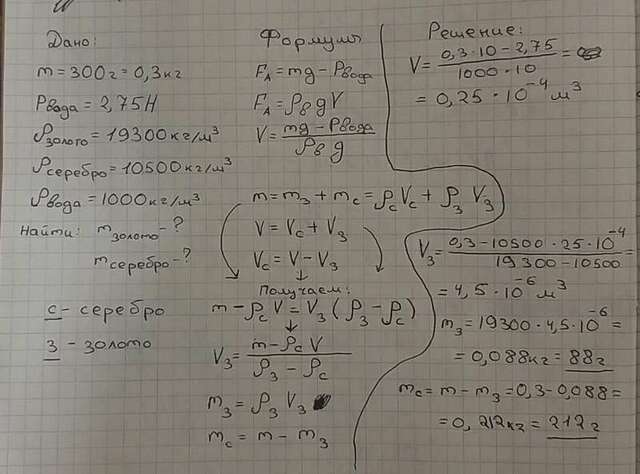 Дано:
m = 300г = 0,3кг
Pвода = 2,75Н
ρзолото = 19300кг/м³
ρсеребро = 10500кг/м³
ρвода = 1000кг/м³
Найти: mзолото - ?
mсеребро - ?
с - серебро
з - золото
Формулы
F_A = mg - Pвода
F_A = ρв g V
V = (mg - Pвода) / (ρв g)
m = mз + mс = ρс Vс + ρз Vз
V = Vс + Vз
Vс = V - Vз
↓
Получаем:
m - ρс V = Vз (ρз - ρс)
↓
Vз = (m - ρс V) / (ρз - ρс)
mз = ρз Vз
mс = m - mз
Решение:
V = (0,3 · 10 - 2,75) / (1000 · 10) =
= 0,25 · 10⁻⁴ м³
Vз = (0,3 - 10500 · 25 · 10⁻⁴) / (19300 - 10500) =
= 4,5 · 10⁻⁶ м³
mз = 19300 · 4,5 · 10⁻⁶ =
= 0,088кг = 88г
mс = m - mз = 0,3 - 0,088 =
= 0,212кг = 212г